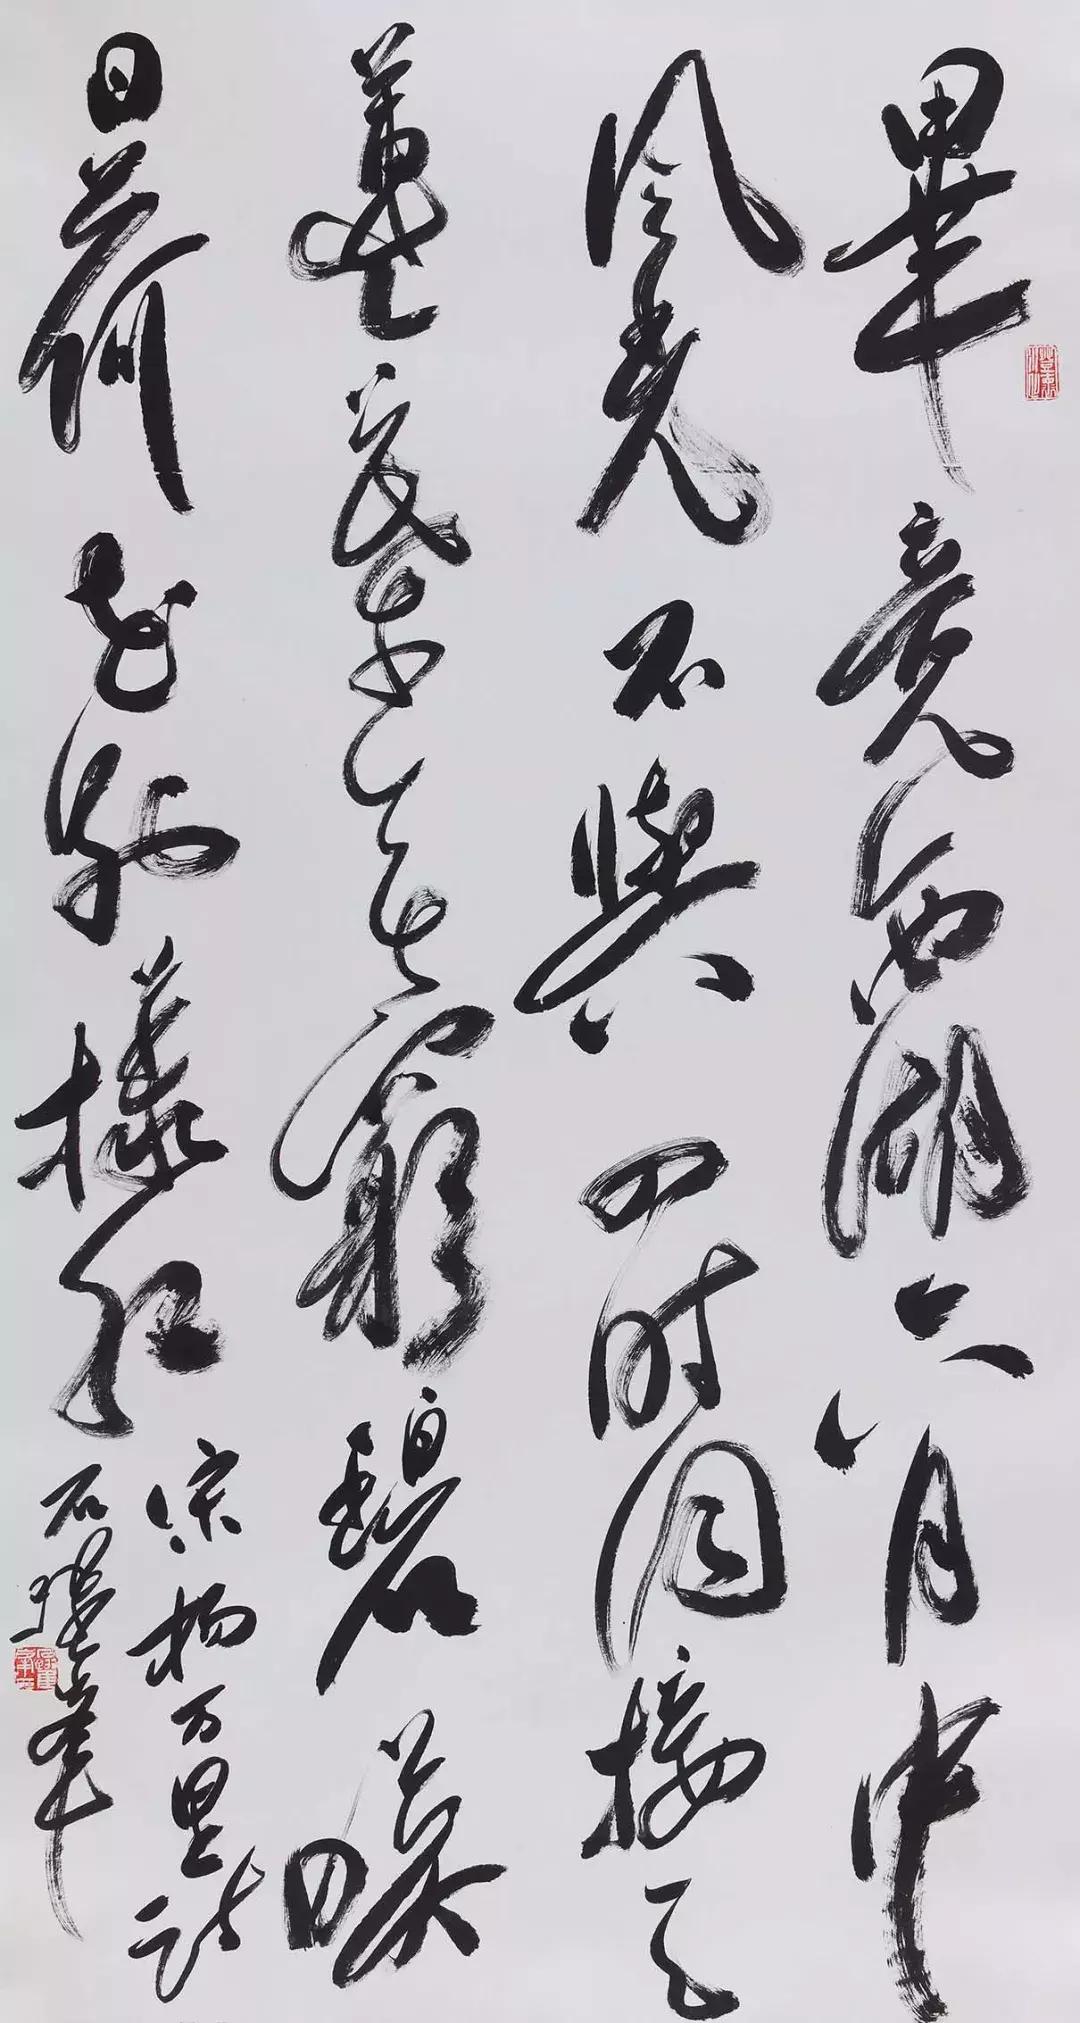 畢竟西湖六月中
風光不與四時同接天
蓮葉無窮碧暎
日荷花別樣紅
宋楊万里詩